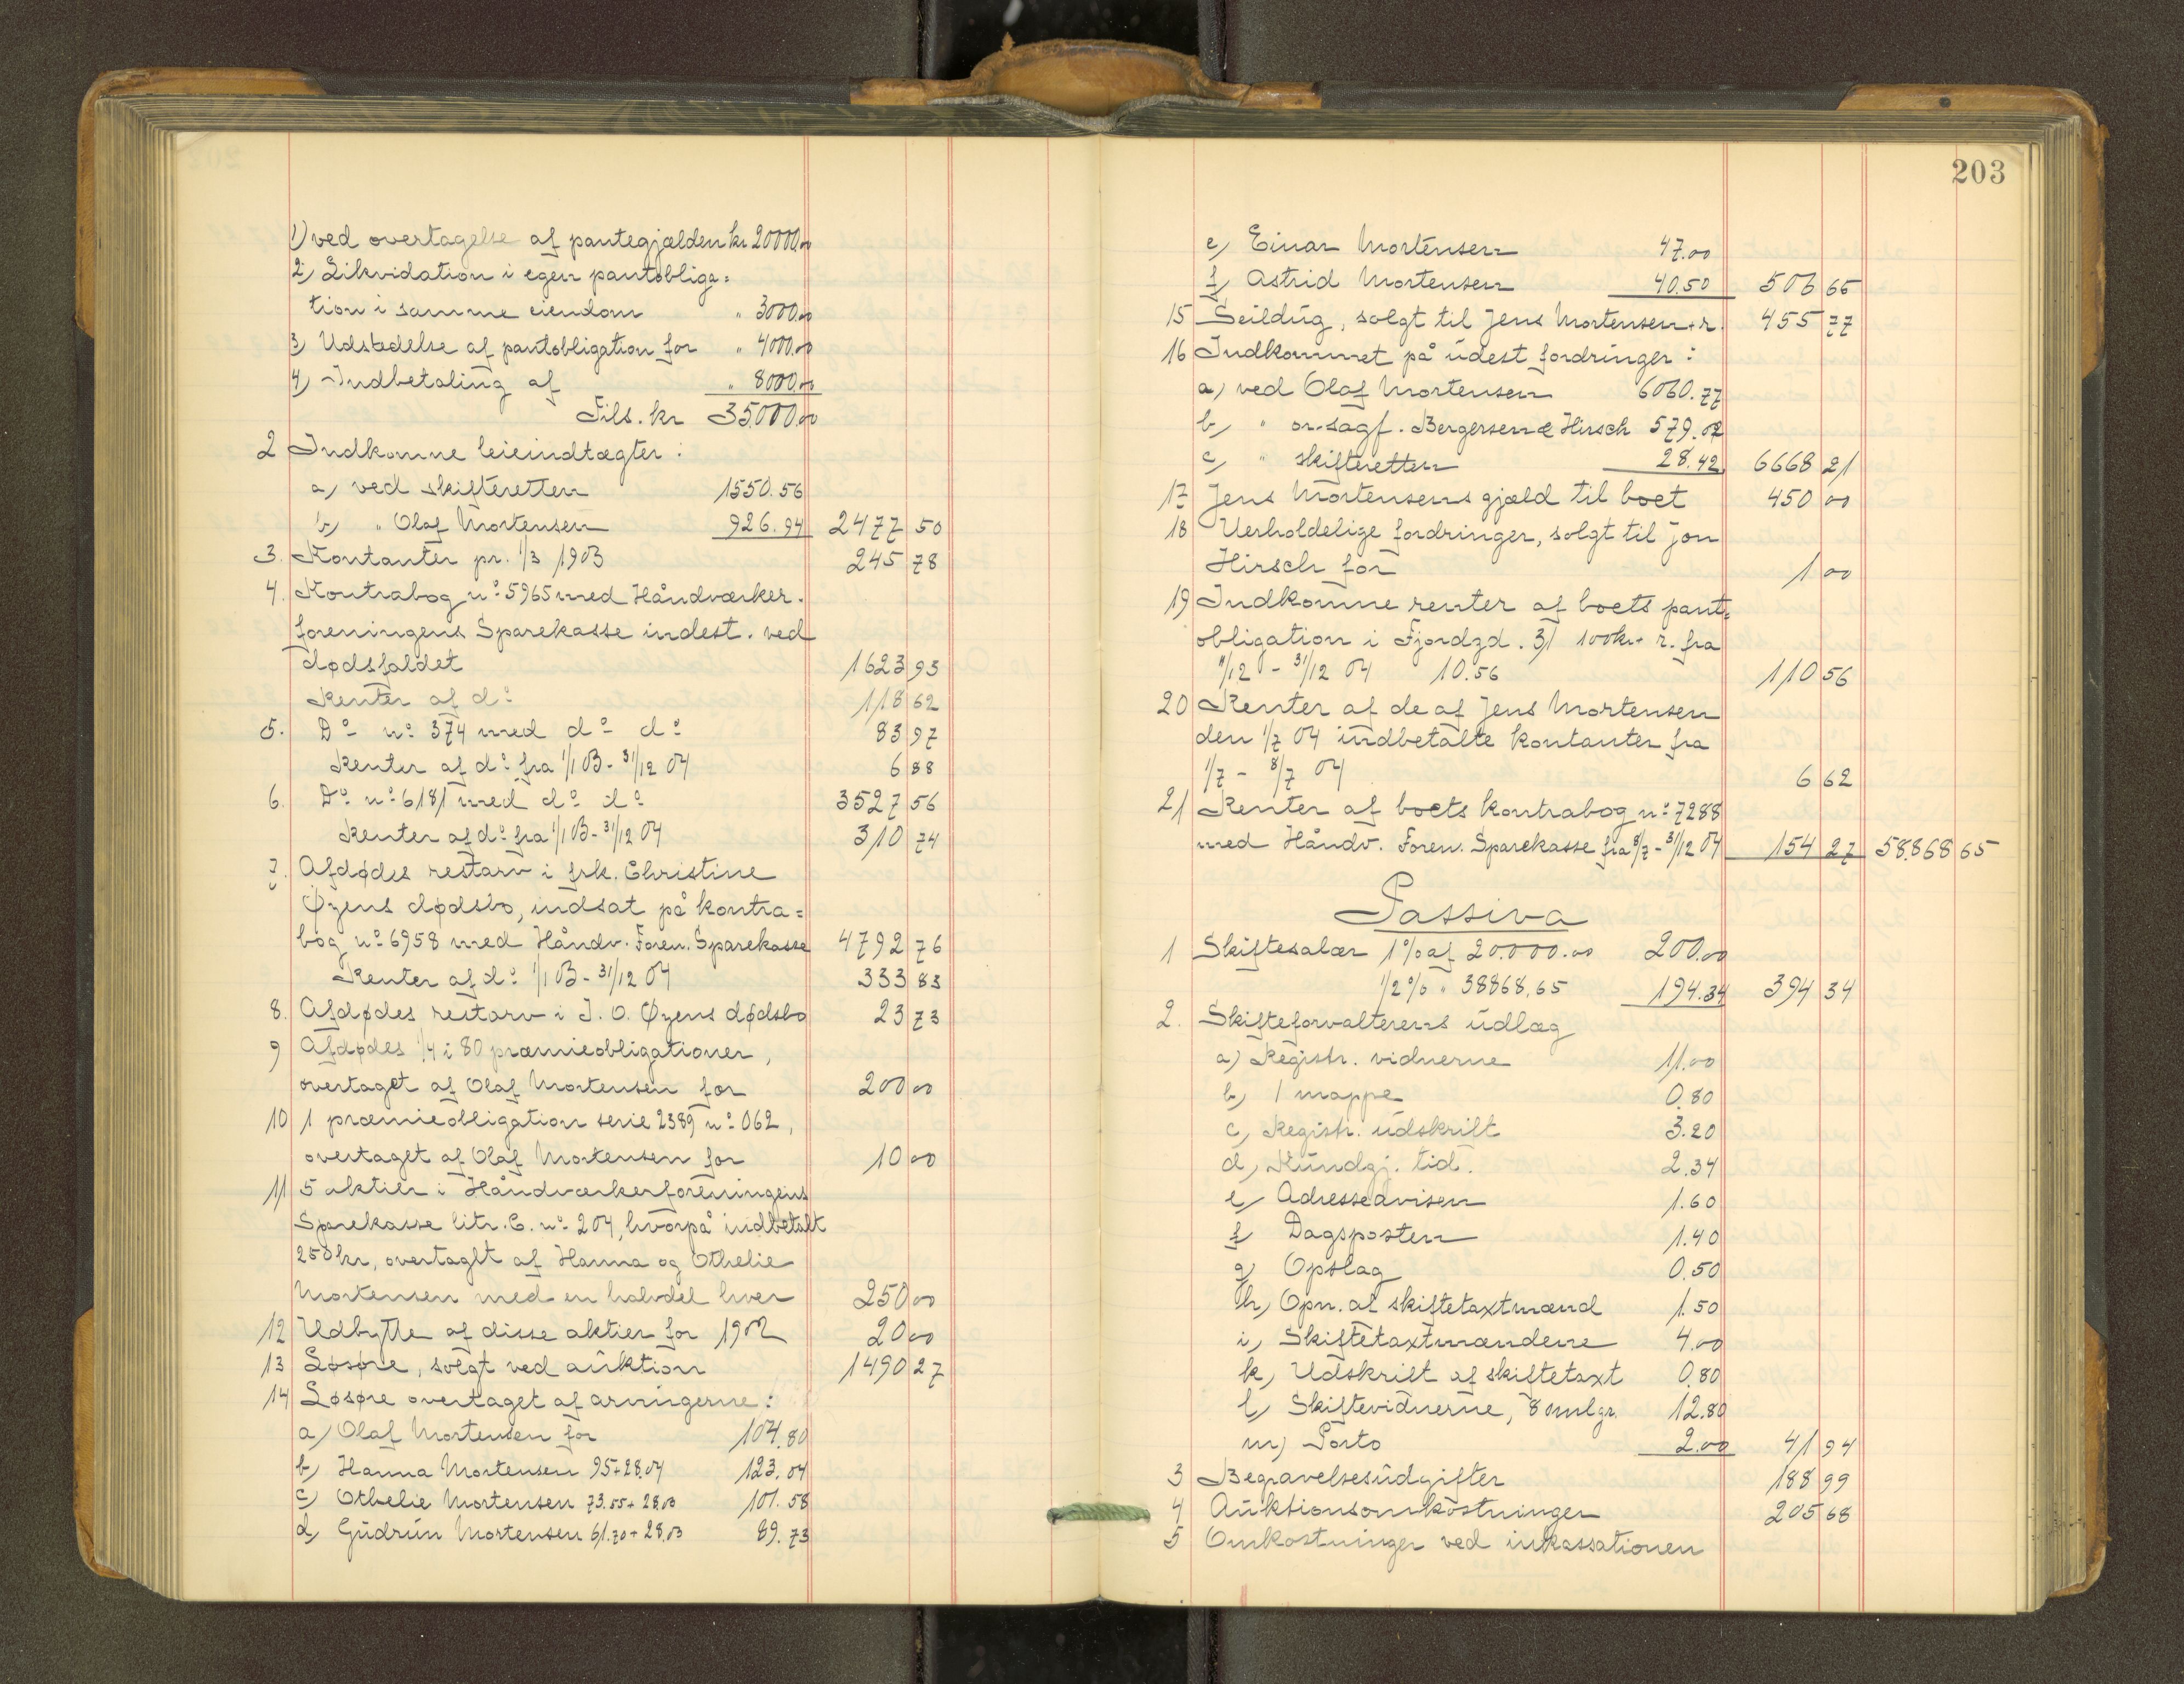 1) ved overtagelse af pantegjælden kr 20000.00
2) Likvidation i egen pantobliga=
tion i samme eiendom " 3000.00
3) Udstedelse af pantobligation for " 4000.00
4) Indbetaling af " 8000.00
Tils. kr 35000.00
2 Indkomne leieindtægter:
a) ved skifteretten 1550.56
b) " Olaf Mortensen 926.94 2477 50
3. Kontanter pr. 1/3 1903 245 78
4. Kontrabog no 5965 med Håndværker.
foreningens Sparekasse indest. ved
dødsfaldet 1623 93
Renter af do 118 62
5. Do no 374 med do do 83 97
Renter af do fra 1/1 03 - 31/12 04 6 88
6. Do no 6181 med do do 3527 56
Renter af do fra 1/1 03 - 31/12 04 310 74
7. Afdødes restarv i frk. Christine
Øyens dødsbo, indsat på kontra=
bog no 6958 med Håndv. Foren. Sparekasse 4792 76
Renter af do 1/1 03 - 31/12 04 333 83
8. Afdødes restarv i J. O. Øyens dødsbo 23 73
9 Afdødes 1/4 i 80 præmieobligationer,
overtaget af Olaf Mortensen for 200 00
10 1 præmieobligation serie 2389 no 062,
overtaget af Olaf Mortensen for 10 00
11 5 aktier i Håndværkerforeningens
Sparekasse litr. C. no 204, hvorpå indbetalt
250 kr, overtagt af Hanna og Othelie
Mortensen med en halvdel hver 250 00
12 Udbytte af disse aktier for 1902 20 00
13 Løsøre, solgt ved auktion 1490 27
14 Løsøre overtaget af arvingerne:
a) Olaf Mortensen for 104.80
b) Hanna Mortensen 95+28.04 123.04
c) Othelie Mortensen 73.55+28.03 101.58
d) Gudrun Mortensen 61.70+28.03 89.73
203
e) Einar Mortensen 47.00
f) Astrid Mortensen 40.50 506 65
15 Seildug, solgt til Jens Mortensen + r. 455 77
16 Indkommet på udest fordringer:
a) ved Olaf Mortensen 6060.77
b) " or.sagf. Bergersen & Hirsch 579.02
c) " skifteretten 28.42 6668 21
17 Jens Mortensens gjæld til boet 450 00
18 Uerholdelige fordringer, solgt til Jon
Hirsch for 1 00
19 Indkomne renter af boets pant=
obligation i Fjordgd. 31 100 kr + r. fra
11/12 - 31/12 04 10.56 110 56
20 Renter af de af Jens Mortensen
den 1/7 04 indbetalte kontanter fra
1/7 - 8/7 04 6 62
21 Renter af boets kontrabog no 7288
med Håndv. Foren. Sparekasse fra 8/7 - 31/12 04 154 27 58.868 65
Passiva
1 Skiftesalær 1 % af 20.000.00 200.00
1/2 % " 38868,65 194.34 394 34
2. Skifteforvalterens udlæg
a) Registr. vidnerne 11.00
b) 1 mappe 0.80
c) Registr. udskrift 3.20
d) Kundgj. tid. 2.34
e) Adresseavisen 1.60
f) Dagsposten 1.40
g) Opslag 0.50
h) Opn. af skiftetaxtmænd 1.50
i) Skiftetaxtmændene 4.00
k) Udskrift af skiftetaxt 0.80
l) Skiftevidnerne, 8 smlgr. 12.80
m) Porto 2.00 41 94
3 Begravelsesudgifter 188 99
4 Auktionsomkostninger 205 68
5 Omkostninger ved inkassationen